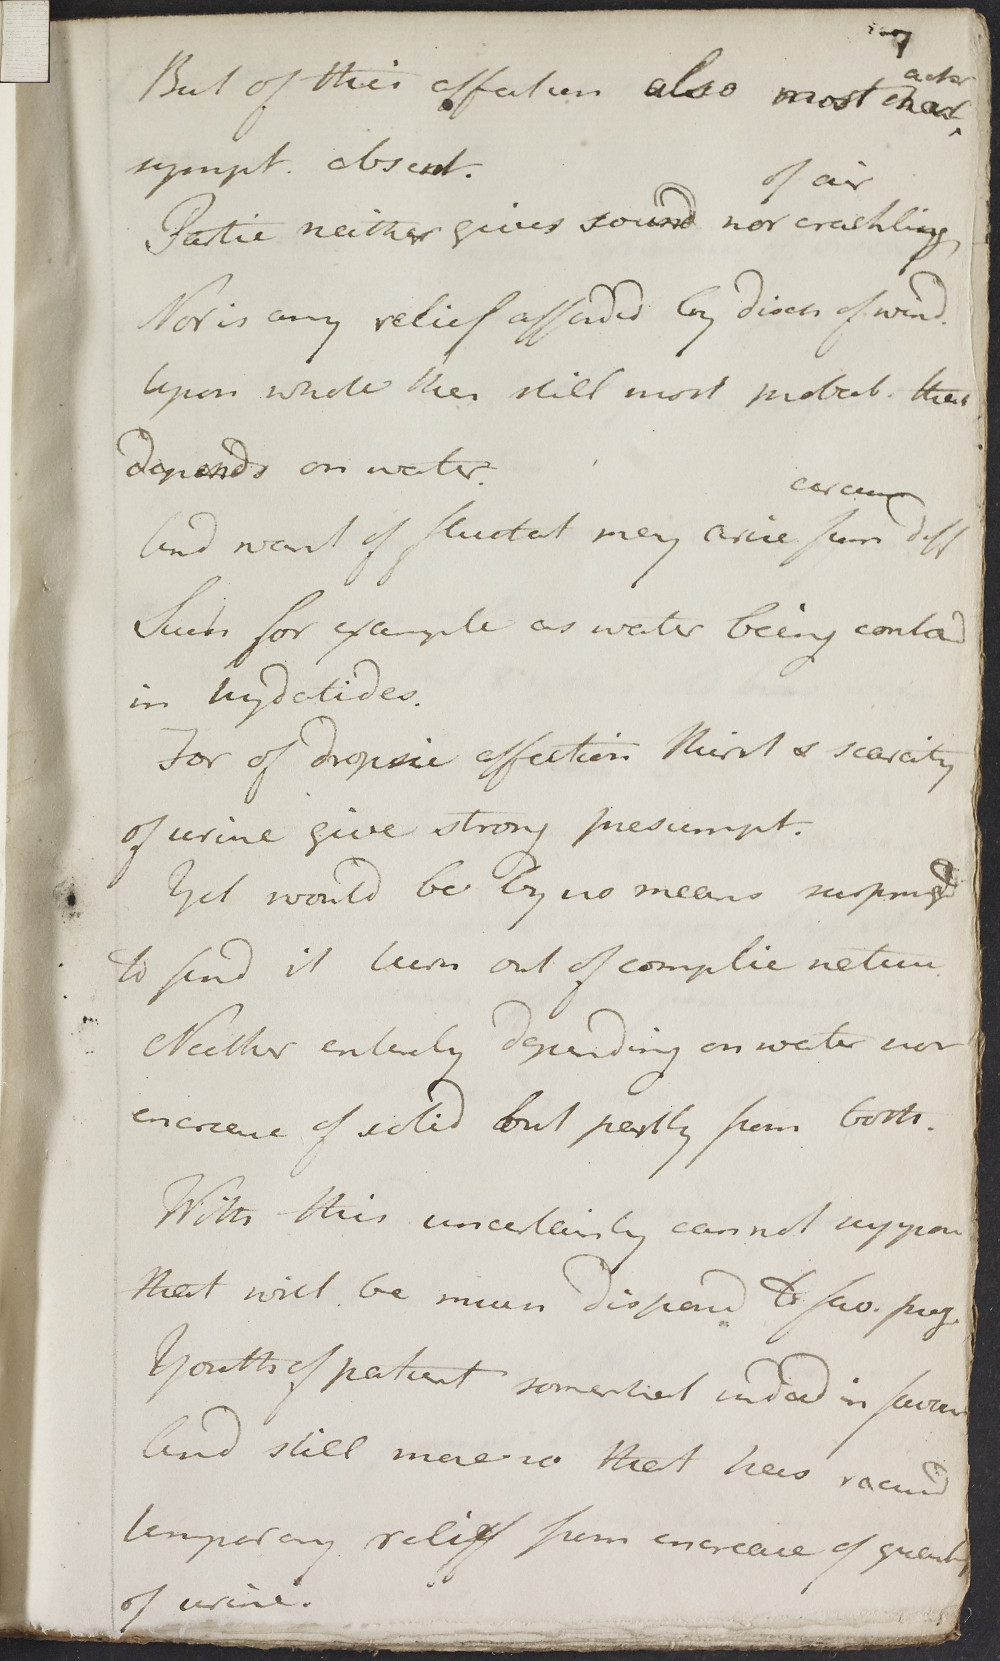 7
But of this affection also most charact
sympt. absent.
Partic neither gives sound nor crackling of air
Nor is any relief afforded by disch of wind.
Upon whole then still most probab. that
depends on water.
And want of fluctat may arise from diff circum
Such for example as water being contd
in hydatides.
For of dropsic affection thirst & scarcity
of urine give strong presumpt.
Yet would be by no means surprisd
to find it turn out of complic nature
Neither entirely depending on water nor
encrease of solid but partly from both.
With this uncertainty cannot suppose
that will be much disposed to fav. prog.
Youth of patient somewhat indeed in favour
And still more so that has receivd
temporary relieff from encrease of quantity
of urine.